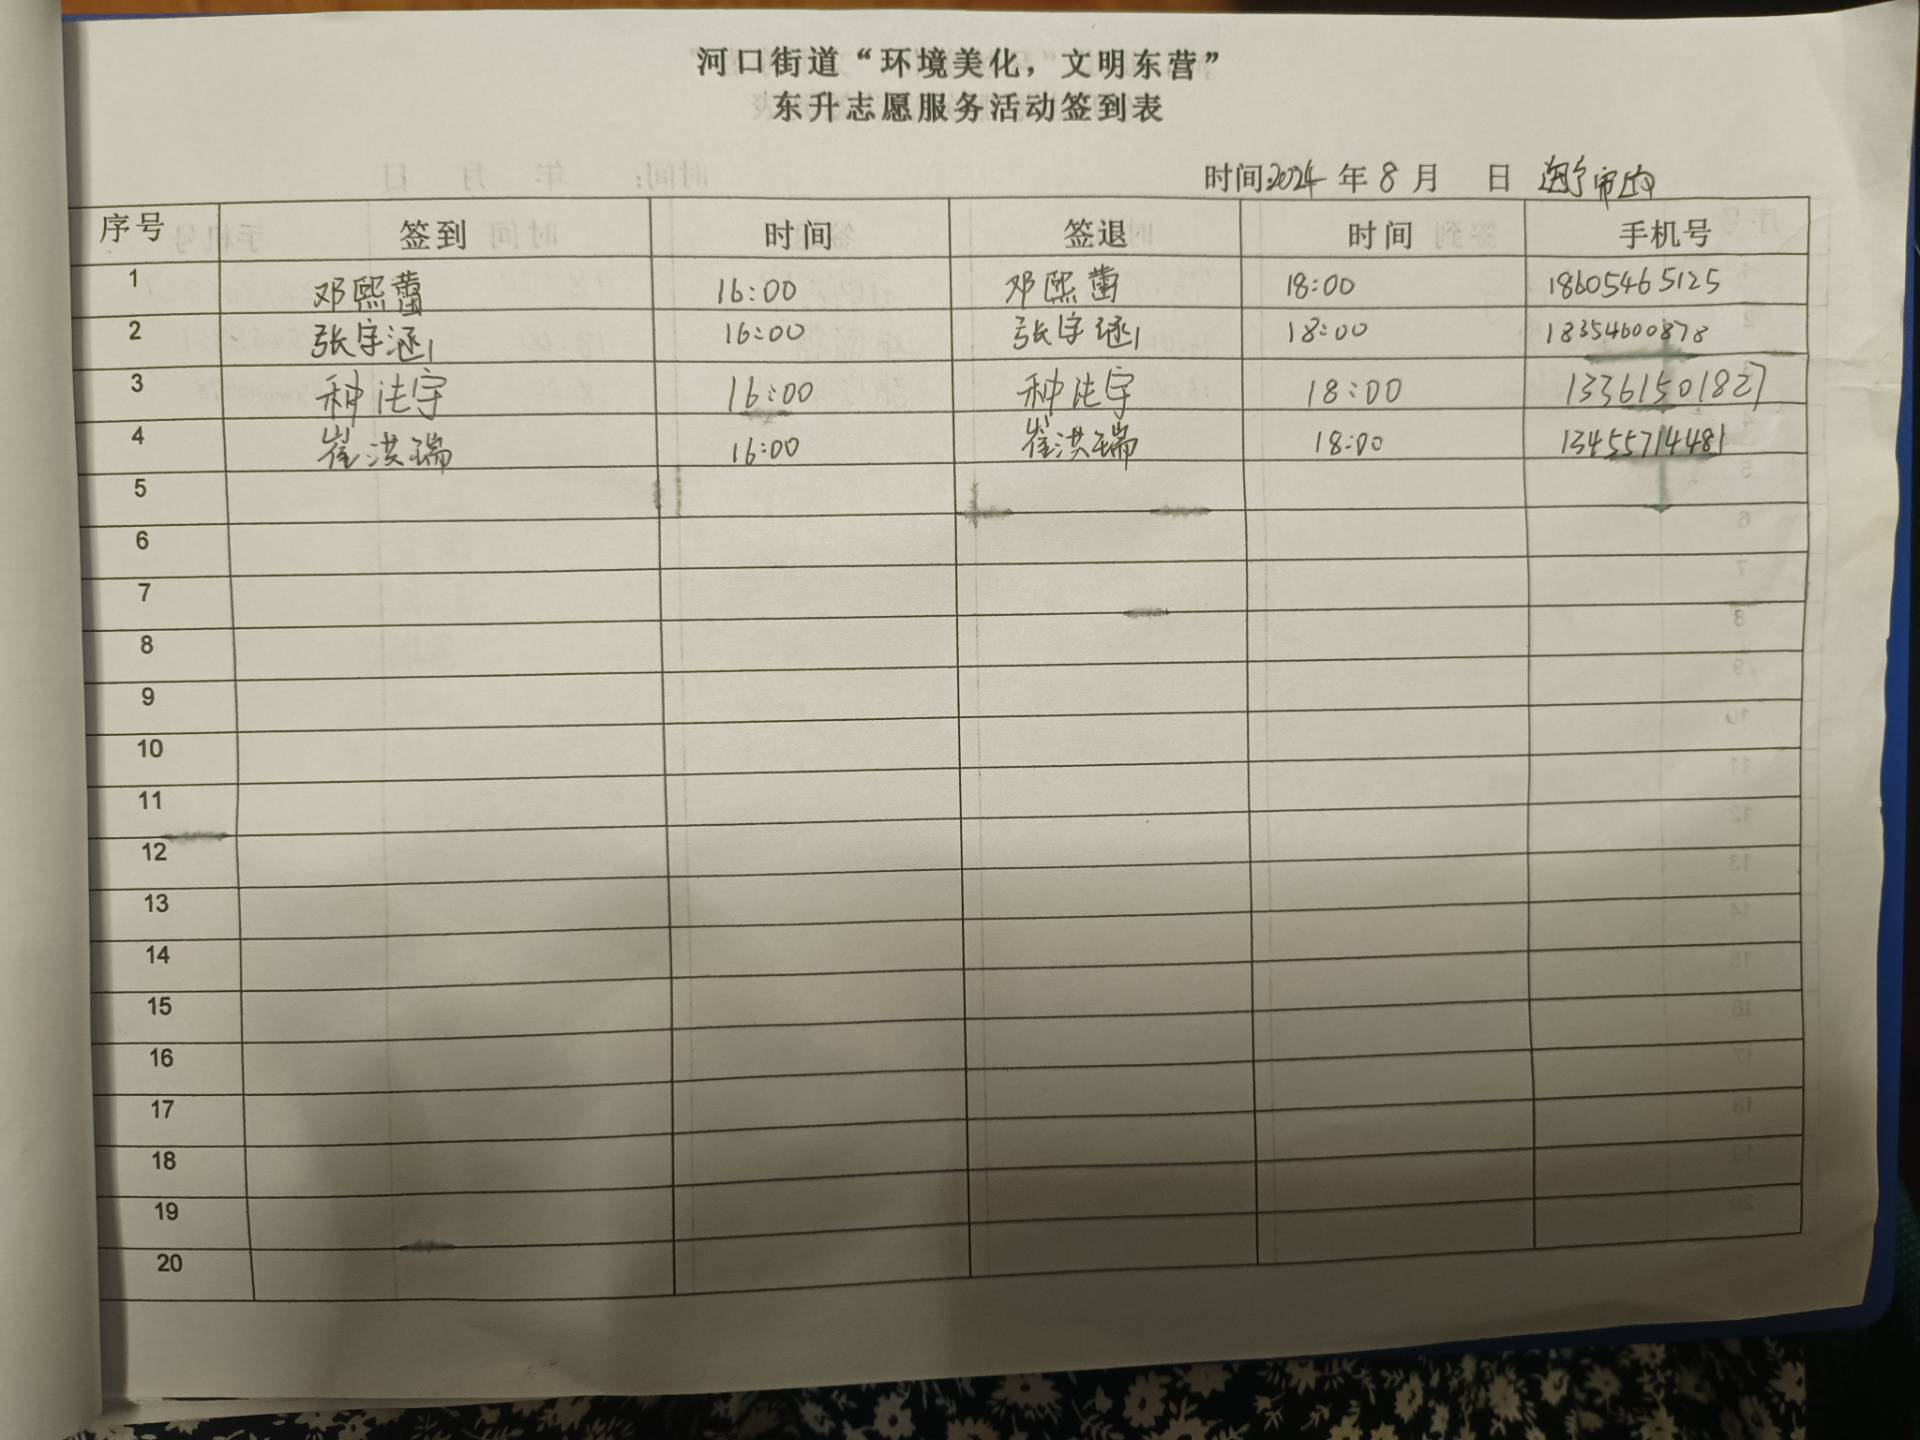 河口街道“环境美化，文明东营”
东升志愿服务活动签到表
时间:2024 年 8 月 日
序号 签到 时间 签退 时间 手机号
1 邓熙蕾 16:00 邓熙蕾 18:00 18605465125
2 张宇涵 16:00 张宇涵 18:00 18354600878
3 种法宇 16:00 种法宇 18:00 13361501827
4 崔洪瑞 16:00 崔洪瑞 18:00 13455714481
5
6
7
8
9
10
11
12
13
14
15
16
17
18
19
20